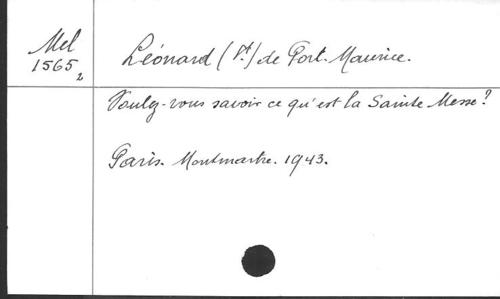 Mel
1565
2
Léonard (St.) de Port-Maurice.
Voulez-vous savoir ce qu'est la Sainte Messe?
Paris. Montmartre. 1943.